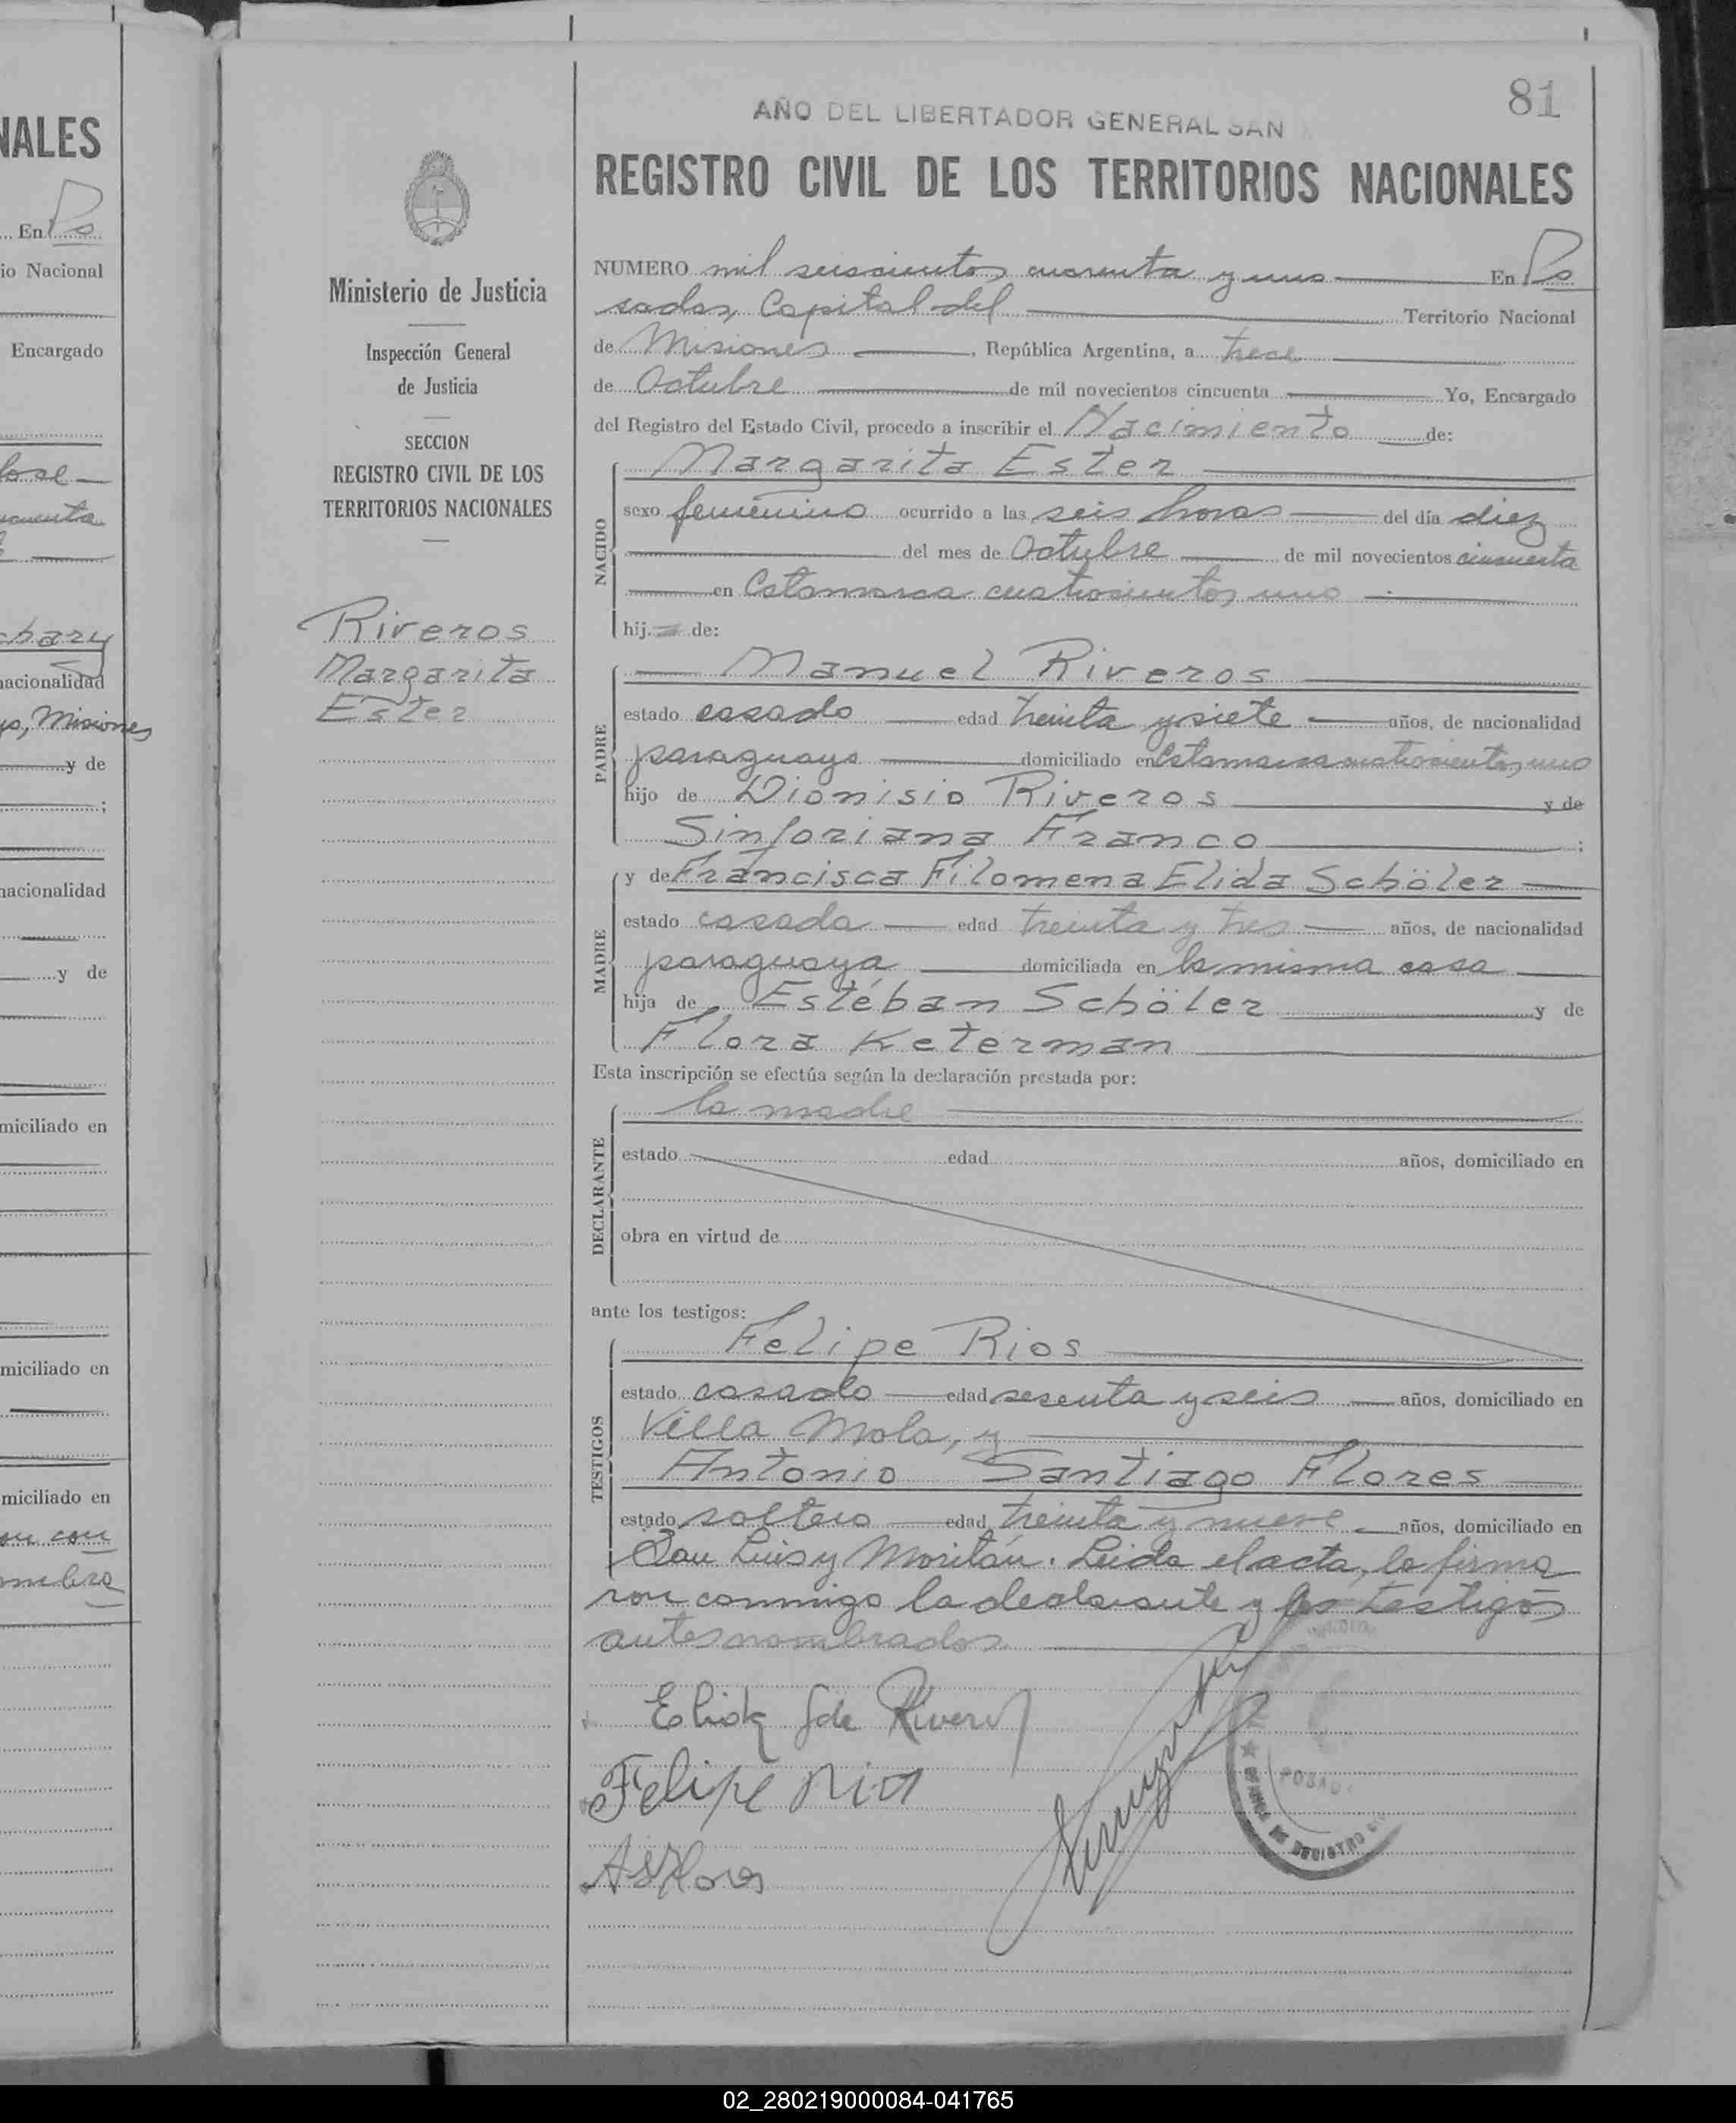 NALES
En Ps
io Nacional
Encargado
chary
nacionalidad
Misiones
y de
;
nacionalidad
y de
miciliado en
miciliado en
miciliado en
81
AÑO DEL LIBERTADOR GENERAL SAN
REGISTRO CIVIL DE LOS TERRITORIOS NACIONALES
Ministerio de Justicia
Inspección General
de Justicia
SECCION
REGISTRO CIVIL DE LOS
TERRITORIOS NACIONALES
Riveros
Margarita
Ester
NUMERO mil seiscientos cuarenta y uno En Po
sadas, Capital del Territorio Nacional
de Misiones, República Argentina, a trece
de Octubre de mil novecientos cincuenta Yo, Encargado
del Registro del Estado Civil, procedo a inscribir el Nacimiento de:
NACIDO
Margarita Ester
sexo femenino ocurrido a las seis horas del día diez
del mes de Octubre de mil novecientos cincuenta
en Catamarca cuatrocientos uno
hij de:
PADRE
Manuel Riveros
estado casado edad treinta y siete años, de nacionalidad
paraguaya domiciliado en Catamarca cuatrocientos uno
hijo de Dionisio Riveros y de
Sinforiana Franco ;
MADRE
y de Francisca Filomena Elida Schöler
estado casada edad treinta y tres años, de nacionalidad
paraguaya domiciliada en la misma casa
hija de Estéban Schöler y de
Flora Keterman
Esta inscripción se efectúa según la declaración prestada por:
DECLARANTE
la madre
estado edad años, domiciliado en
obra en virtud de
ante los testigos:
TESTIGOS
Felipe Rios
estado casado edad sesenta y seis años, domiciliado en
Villa Mola, y
Antonio Santiago Flores
estado soltero edad treinta y nueve años, domiciliado en
San Luis y Moritán. Leida el acta, la firma
ron conmigo la declarante y los testigos
antes nombrados
Elida S de Riveros
Felipe Rios
ASFlores
POSADAS
OFICINA DE REGISTRO
02_280219000084-041765